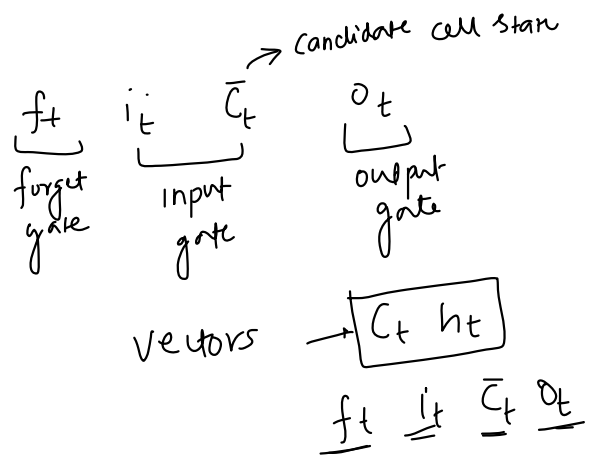 candidate cell state
ft it C̄t ot
forget gate
input gate
output gate
vectors → Ct ht
ft it C̄t ot